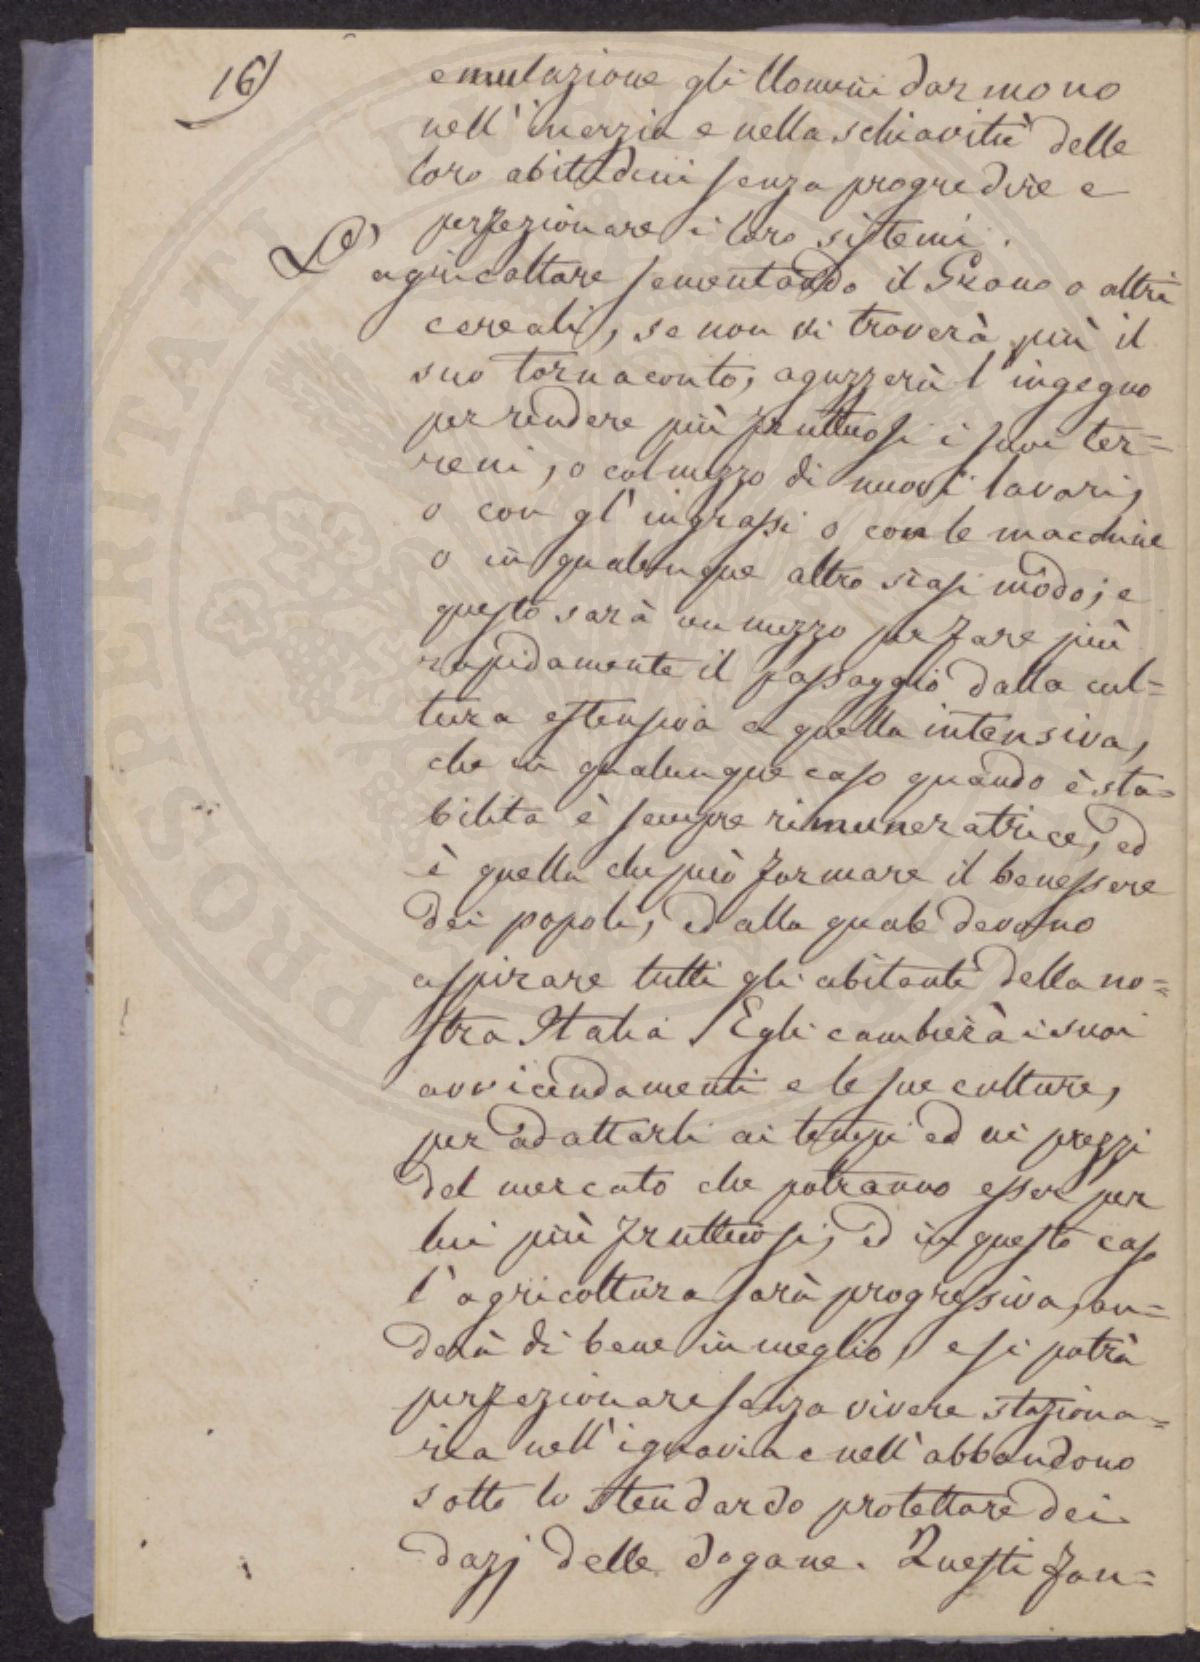 16)
emulazione gli Uomini dormono
nell'inerzia e nella schiavitù delle
loro abitudini senza progredire e
perfezionare i loro sistemi.
L'agricoltore sementando il Grano o altri
cereali, se non vi troverà più il
suo tornaconto, aguzzerà l'ingegno
per rendere più fruttuosi i suoi ter=
reni, o col mezzo di nuovi lavori,
o con gl'ingrassi o con le macchine
o in qualunque altro siasi modo; e
questo sarà un mezzo per fare più
rapidamente il passaggio dalla cul=
tura estensiva a quella intensiva,
che in qualunque caso quando è sta=
bilita è sempre rimuneratrice, ed
è quella che può formare il benessere
dei popoli, ed alla quale devono
aspirare tutti gli abitanti della no=
stra Italia. Egli cambierà i suoi
avvicendamenti e le sue culture,
per adattarli ai tempi ed ai prezzi
del mercato che potranno esser per
lui più fruttuosi; ed in questo caso
l'agricoltura sarà progressiva, an=
derà di bene in meglio, e si potrà
perfezionare senza vivere staziona=
ria nell'ignavia e nell'abbandono
sotto lo stendardo protettore dei
dazj delle dogane. Questi fan=
PROSPERITATI PUBLICAE